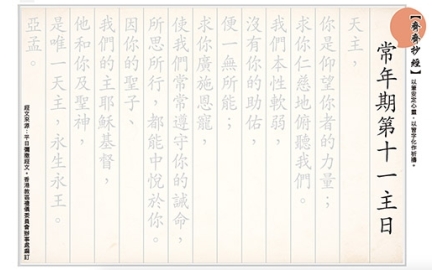 【齊齊抄經】以筆安定心靈，以習字化作祈禱。
常年期第十一主日
天主，
你是仰望你者的力量；
求你仁慈地俯聽我們。
我們本性軟弱，
沒有你的助佑，
便一無所能；
求你廣施恩寵，
使我們常常遵守你的誡命，
所思所行，都能中悅於你。
因你的聖子、
我們的主耶穌基督，
他和你及聖神，
是唯一天主，永生永王。
亞孟。
經文來源：平日彌撒經文，香港教區禮儀委員會辦事處編訂